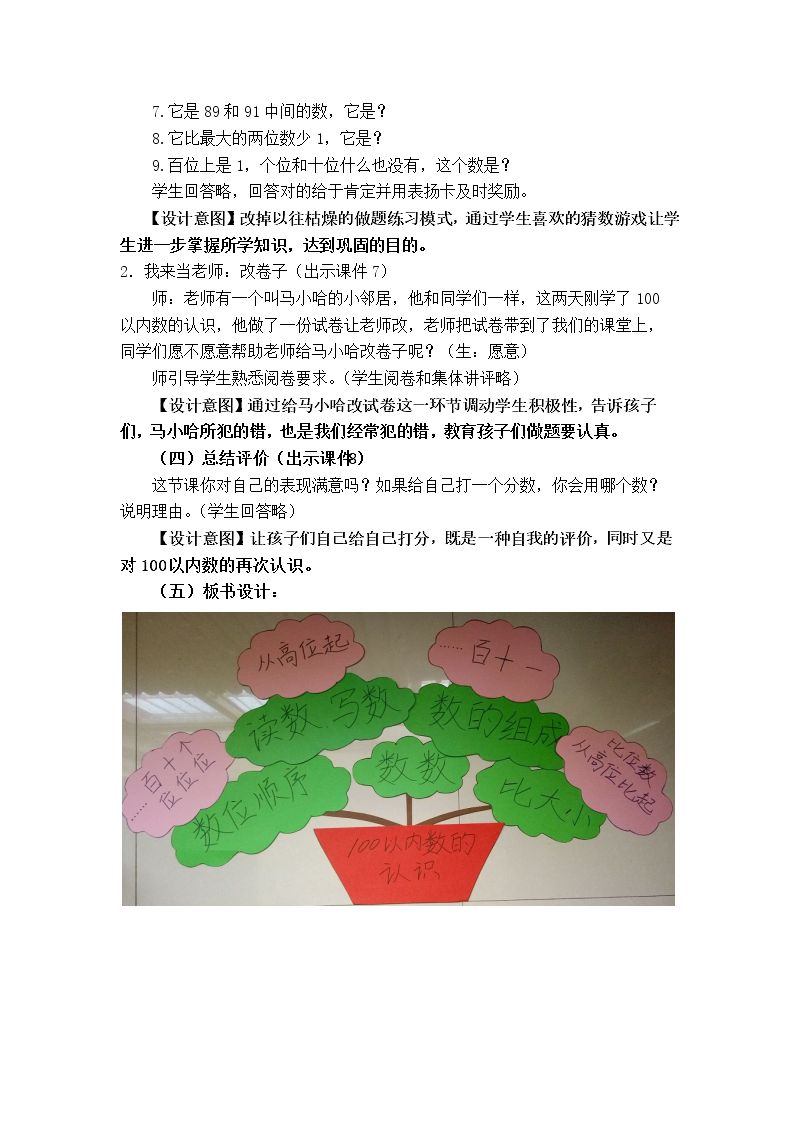 7.它是 89 和 91 中间的数，它是？
8.它比最大的两位数少 1，它是？
9.百位上是 1，个位和十位什么也没有，这个数是？
学生回答略，回答对的给于肯定并用表扬卡及时奖励。
【设计意图】改掉以往枯燥的做题练习模式，通过学生喜欢的猜数游戏让学
生进一步掌握所学知识，达到巩固的目的。
2．我来当老师：改卷子（出示课件 7）
师：老师有一个叫马小哈的小邻居，他和同学们一样，这两天刚学了 100
以内数的认识，他做了一份试卷让老师改，老师把试卷带到了我们的课堂上，
同学们愿不愿意帮助老师给马小哈改卷子呢？（生：愿意）
师引导学生熟悉阅卷要求。（学生阅卷和集体讲评略）
【设计意图】通过给马小哈改试卷这一环节调动学生积极性，告诉孩子
们，马小哈所犯的错，也是我们经常犯的错，教育孩子们做题要认真。
（四）总结评价（出示课件8）
这节课你对自己的表现满意吗？如果给自己打一个分数，你会用哪个数？
说明理由。（学生回答略）
【设计意图】让孩子们自己给自己打分，既是一种自我的评价，同时又是
对 100以内数的再次认识。
（五）板书设计：
从高位起
……百十一
读数 写数
数的组成
……百十个
位位位
数位顺序
数数
比大小
比位数
从高位比起
100以内数的
认识